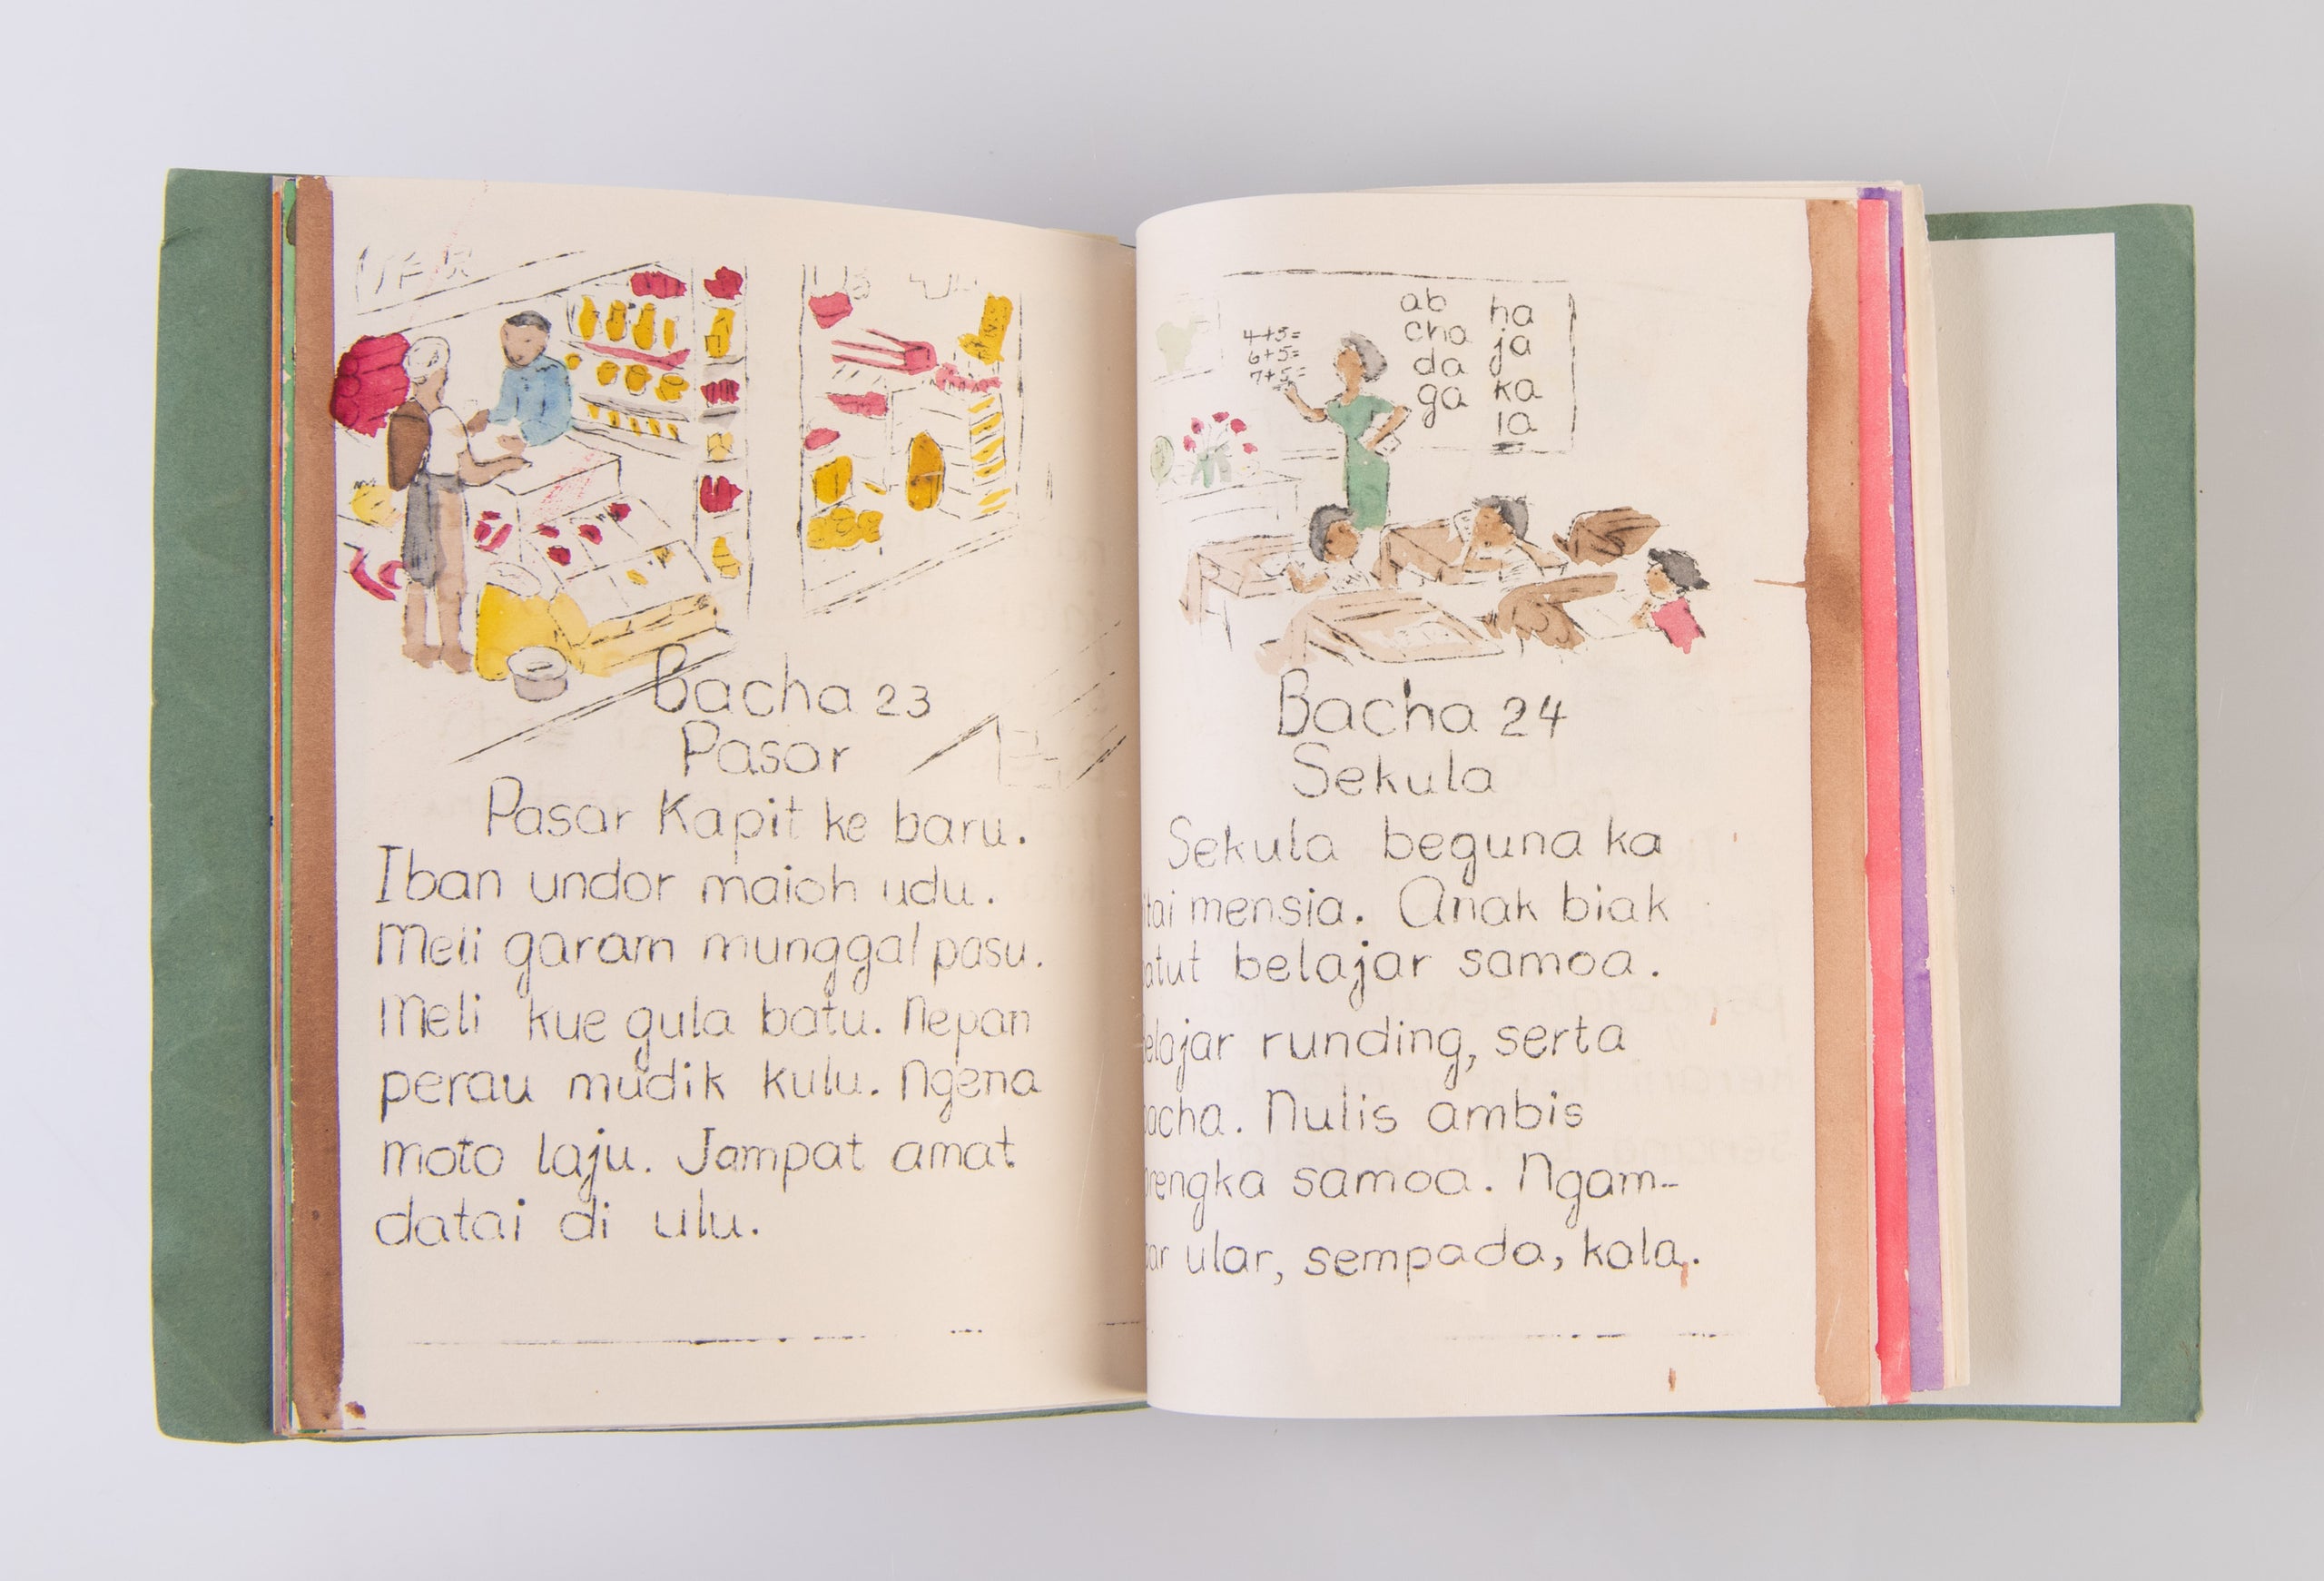 Bacha 23
Pasar
Pasar Kapit ke baru.
Iban undor maioh udu.
Meli garam munggal pasu.
Meli kue gula batu. Nepan
perau mudik kulu. Ngena
moto laju. Jampat amat
datai di ulu.
4+5=
6+5=
7+5=
ab ha
cha ja
da ka
ga la
Bacha 24
Sekula
Sekula beguna ka
itai mensia. Anak biak
atut belajar samoa.
elajar runding, serta
acha. Nulis ambis
rengka samoa. Ngam-
ar ular, sempada, kala.